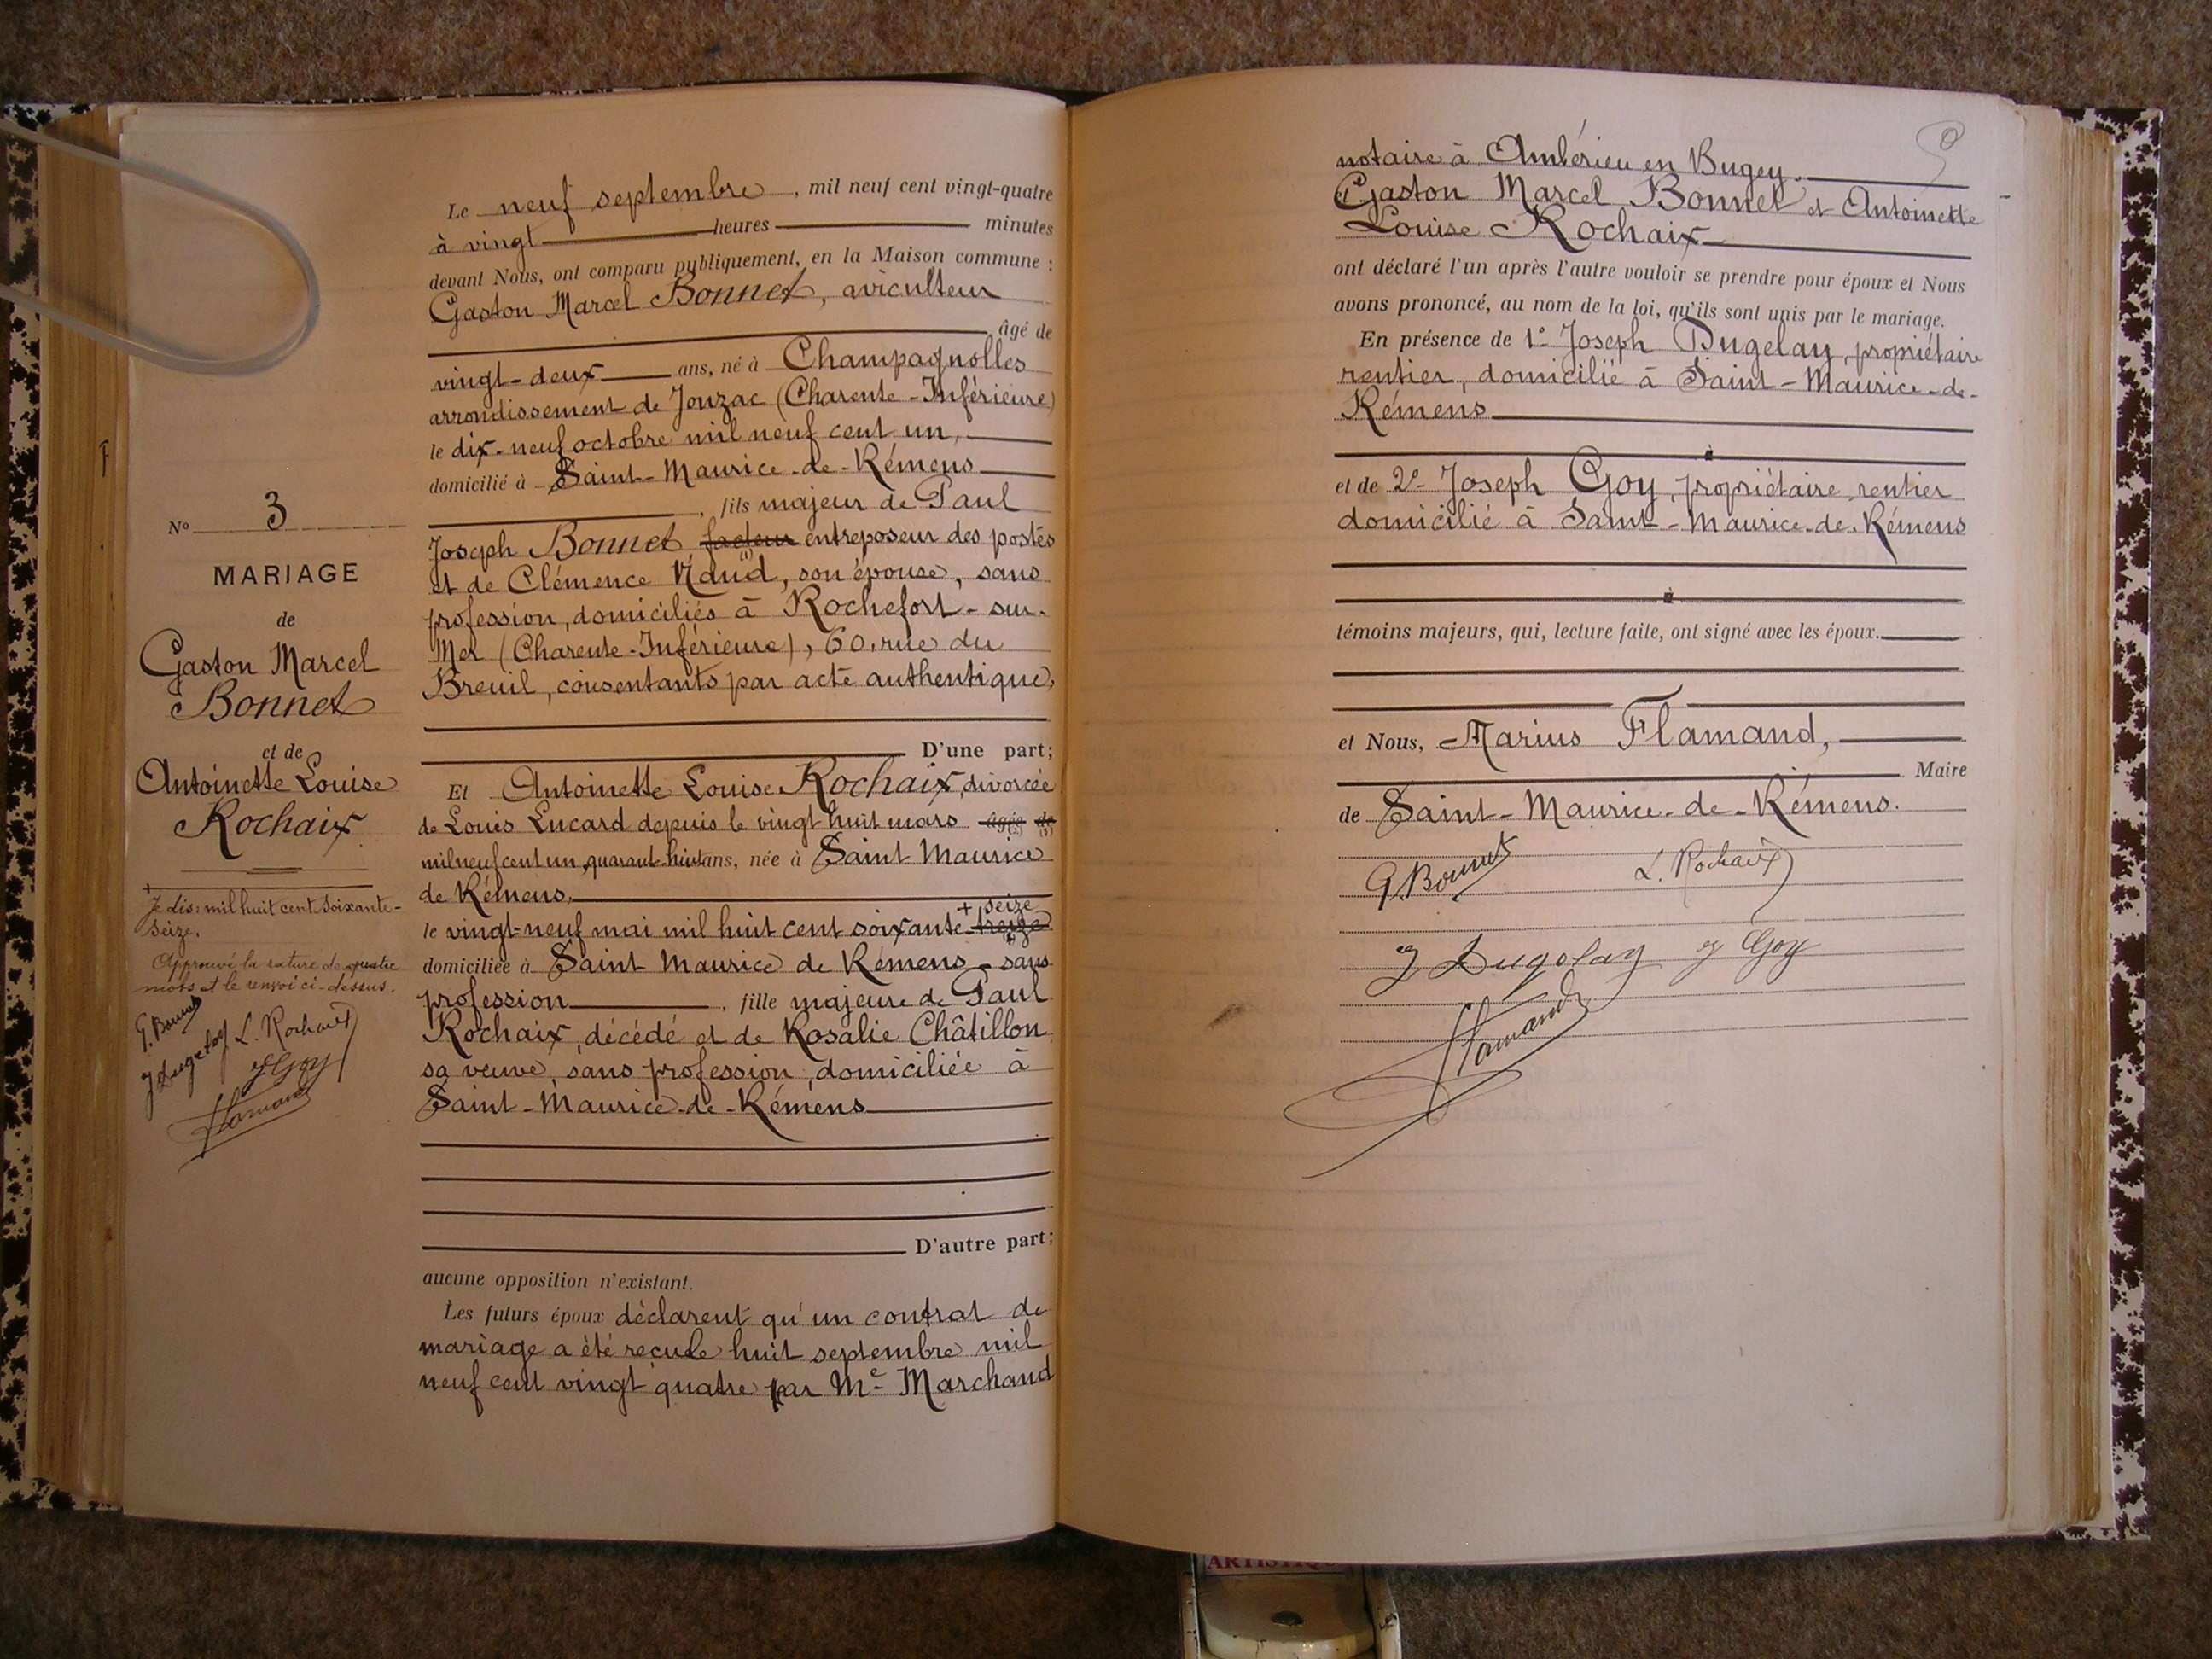 Le neuf septembre, mil neuf cent vingt-quatre
à vingt heures minutes
devant Nous, ont comparu publiquement, en la Maison commune :
Gaston Marcel Bonnet, aviculteur
âgé de
vingt-deux ans, né à Champagnolles
arrondissement de Jonzac (Charente-Inférieure)
le dix-neuf octobre mil neuf cent un,
domicilié à Saint-Maurice-de-Rémens
, fils majeur de Paul
Joseph Bonnet facteur entreposeur des postes
(1)
et de Clémence Naud, son épouse, sans
profession, domiciliés à Rochefort-sur-
Mer (Charente-Inférieure), 60, rue du
Breuil, consentants par acte authentique,
D'une part;
Et Antoinette Louise Rochaix, divorcée
de Louis Lucard depuis le vingt huit mars âgée de
(2) (3)
mil neuf cent un, quarant-huit ans, née à Saint Maurice
de Rémens,
+ seize
le vingt-neuf mai mil huit cent soixante-treize
domiciliée à Saint Maurice de Rémens - sans
profession, fille majeure de Paul
Rochaix, décédé et de Rosalie Châtillon
sa veuve, sans profession, domiciliée à
Saint-Maurice-de-Rémens
D'autre part;
aucune opposition n'existant.
Les futurs époux déclarent qu'un contrat de
mariage a été reçu le huit septembre mil
neuf cent vingt quatre par Me Marchand
No 3
MARIAGE
de
Gaston Marcel
Bonnet
et de
Antoinette Louise
Rochaix
+
Je dis: mil huit cent soixante-
seize.
Approuvé la rature de quatre
mots et le renvoi ci-dessus.
G. Bonnet
J Dugelay L. Rochaix
J Goy
Flamand
notaire à Ambérieu en Bugey.
Gaston Marcel Bonnet et Antoinette
Louise Rochaix
ont déclaré l'un après l'autre vouloir se prendre pour époux et Nous
avons prononcé, au nom de la loi, qu'ils sont unis par le mariage.
En présence de 1° Joseph Dugelay, propriétaire
rentier, domicilié à Saint-Maurice-de-
Rémens
et de 2° Joseph Goy, propriétaire rentier
domicilié à Saint-Maurice-de-Rémens
témoins majeurs, qui, lecture faite, ont signé avec les époux.
et Nous, Marius Flamand,
Maire
de Saint-Maurice-de-Rémens.
G. Bonnet L. Rochaix
J Dugelay J Goy
Flamand